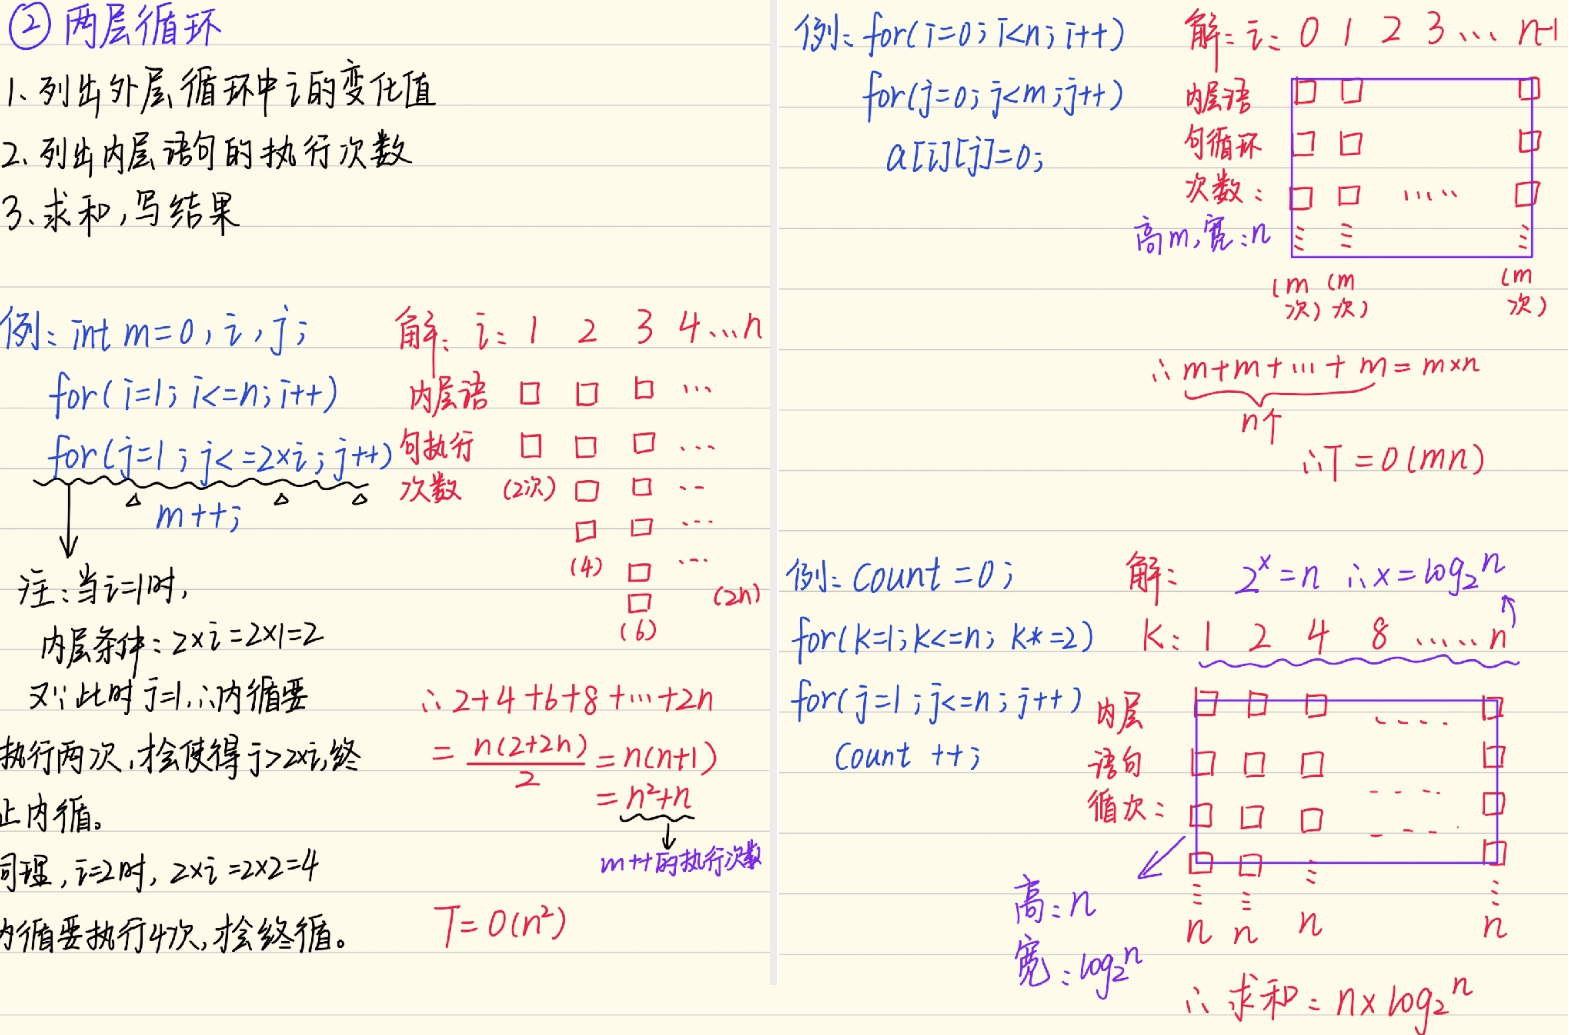 ② 两层循环
1、列出外层循环中i的变化值
2、列出内层语句的执行次数
3、求和,写结果
例: int m=0, i, j;
for(i=1; i<=n; i++)
for(j=1; j<=2×i; j++)
m++;
注:当i=1时,
内层条件:2×i=2×1=2
又∵此时j=1,∴内循要
执行两次,才会使得j>2×i,终
止内循。
同理,i=2时,2×i=2×2=4
内循要执行4次,才会终循。
解: i: 1 2 3 4...n
内层语 □ □ □ ...
句执行 □ □ □ ...
次数 (2次) □ □ ...
□ □ ...
(4) □ ...
□ (2n)
(6)
∴ 2+4+6+8+...+2n
= n(2+2n)/2 = n(n+1)
= n²+n
m++的执行次数
T=O(n²)
例: for(i=0; i<n; i++)
for(j=0; j<m; j++)
a[i][j]=0;
解: i: 0 1 2 3 ... n-1
内层语 □ □ □
句循环 □ □ □
次数: □ □ ..... □
高m,宽:n
(m次) (m次) (m次)
∴ m+m+...+m=m×n
n个
∴T=O(mn)
例: Count=0;
for(k=1; k<=n; k*=2)
for(j=1; j<=n; j++)
Count ++;
解: 2^x=n ∴x=log₂n
K: 1 2 4 8 ..... n
内层 □ □ □ .... □
语句 □ □ □ □
循次: □ □ □ .... □
□ □ □
高:n
宽:log₂n
n n n n
∴ 求和=n×log₂n